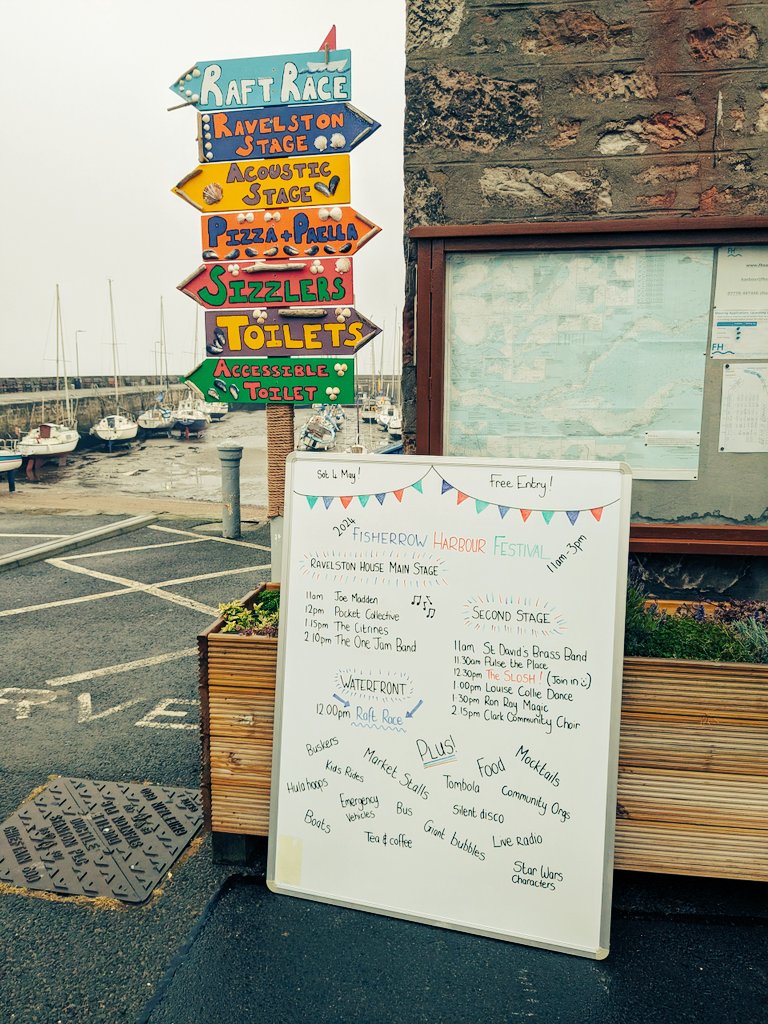 RAFT RACE
RAVELSTON
STAGE
ACOUSTIC
STAGE
PIZZA + PAELLA
SIZZLERS
TOILETS
ACCESSIBLE
TOILET
FH
Sat 4 May!
Free Entry!
2024 FISHERROW HARBOUR FESTIVAL 11am-3pm
RAVELSTON HOUSE MAIN STAGE
11am Joe Madden
12pm Pocket Collective
1.15pm The Citrines
2.10pm The One Jam Band
SECOND STAGE
11am St David's Brass Band
11.30am Pulse the Place
12.30pm The SLOSH! (Join in :)
1.00pm Louise Collie Dance
1.30pm Ron Ray Magic
2.15pm Clark Community Choir
WATERFRONT
12.00pm Raft Race
Plus!
Buskers
Kids Rides
Hula hoops
Market Stalls
Food
Mocktails
Tombola
Community Orgs
Emergency
Vehicles
Bus
Silent disco
Boats
Tea & coffee
Giant bubbles
Live radio
Star Wars
Characters
RVE